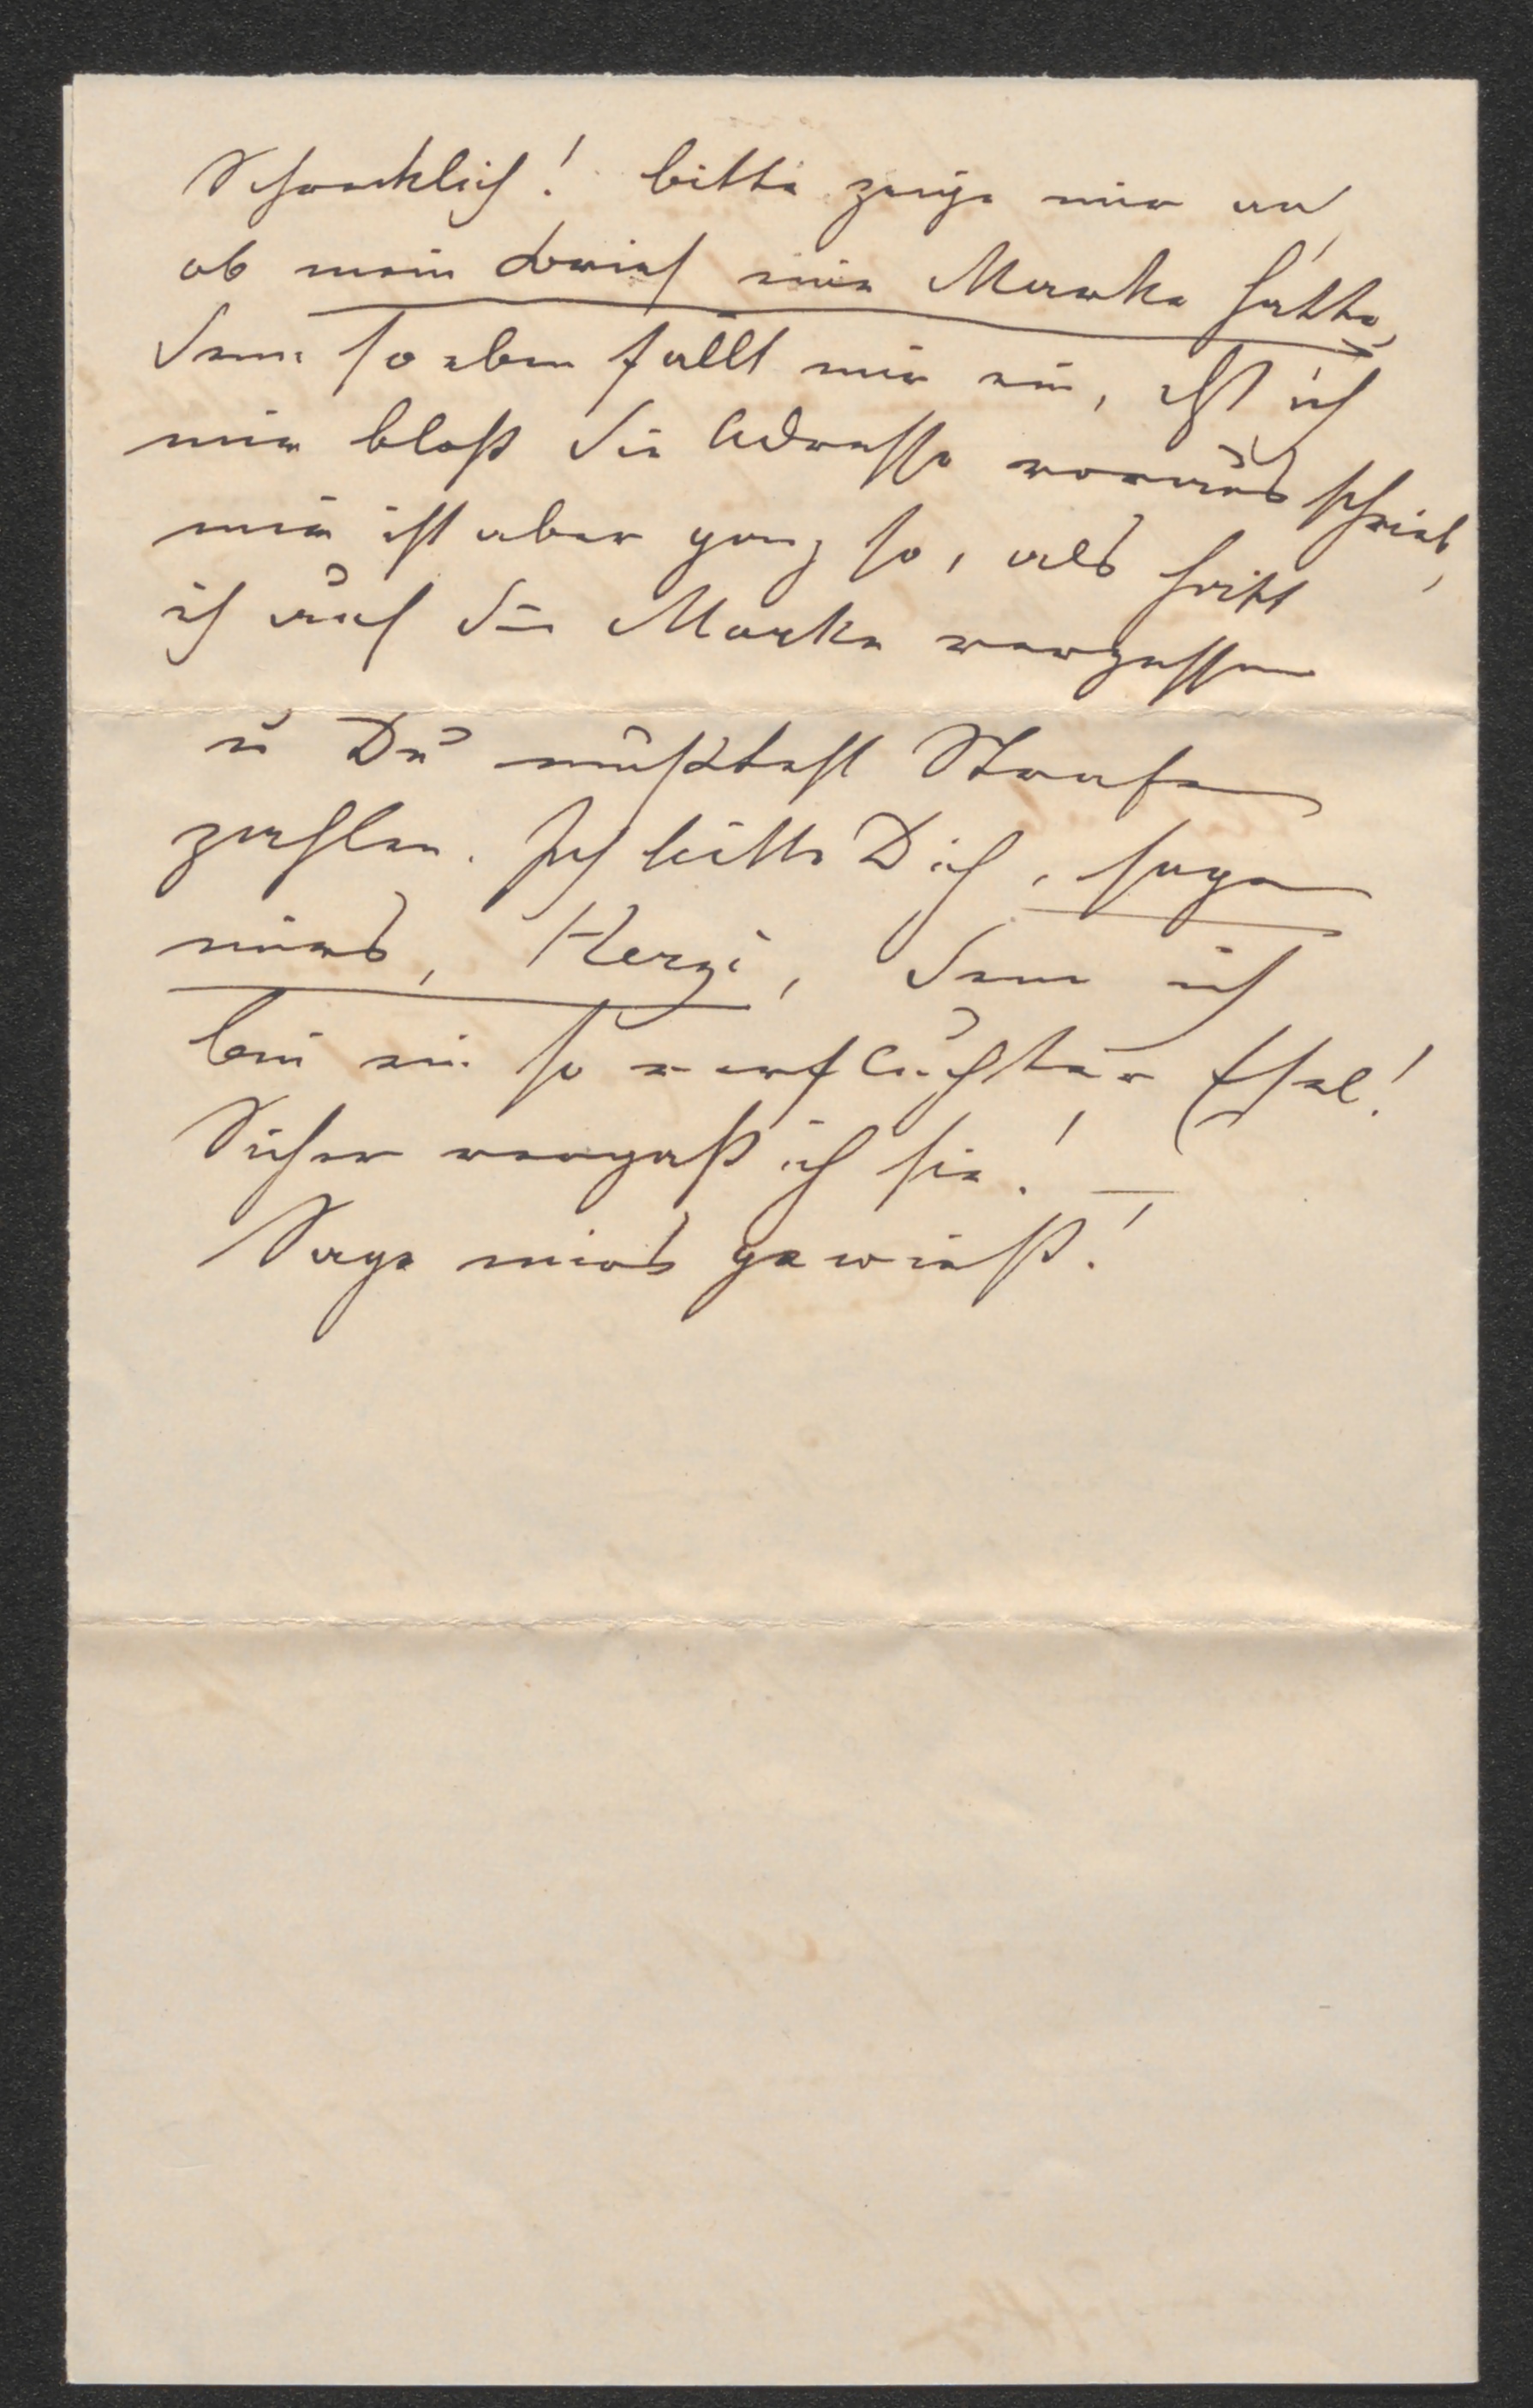 Schrecklich! bitte zeige mir an,
ob mein Brief eine Marke hatte,
denn so eben fällt mir ein, ich
mir bloß die Adresse voraus schrieb,
mir ist aber ganz so, als hätt
ich auf die Marke vergessen
u Du müßtest Strafe
zahlen. Ich bitte Dich, sage
mirs, Herzi, denn ich
bin ein so verfluchter Esel!
Sicher vergaß ich sie! —
Sage mirs gewieß!